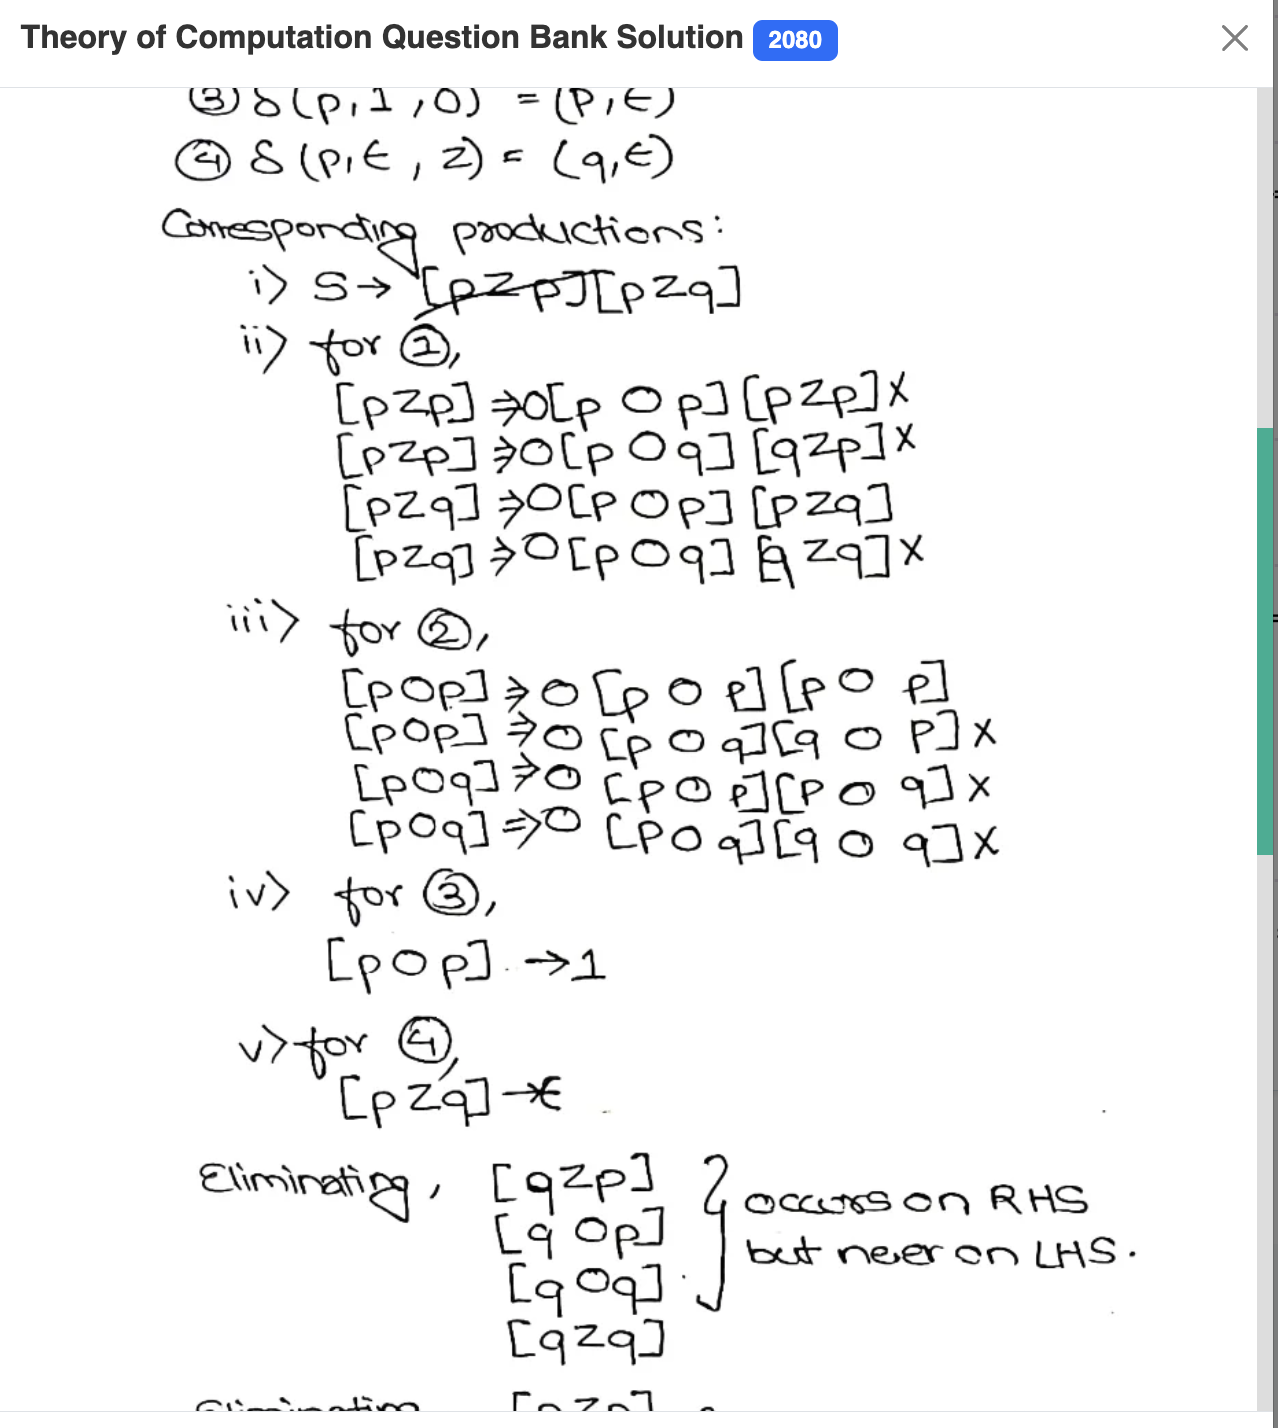 Theory of Computation Question Bank Solution 2080
③ δ(p,1,0) = (p,ϵ)
④ δ(p,ϵ,z) = (q,ϵ)
Corresponding productions:
i) S→ [pzp][pzq]
ii) for ①,
[pzp] ⇒0[p 0 p] [pzp]x
[pzp] ⇒0[p 0 q] [qzp]x
[pzq] ⇒0[p 0 p] [pzq]
[pzq] ⇒0[p 0 q] [q zq]x
iii) for ②,
[p0p] ⇒0 [p 0 p][p 0 p]
[p0p] ⇒0 [p 0 q][q 0 p]x
[p0q] ⇒0 [p 0 p][p 0 q]x
[p0q] ⇒0 [p 0 q][q 0 q]x
iv) for ③,
[p0p] →1
v) for ④,
[pzq] →ϵ
Eliminating, [qzp] } occurs on RHS
[q 0p] but never on LHS.
[q 0q]
[qzq]
Eliminating [pzp]